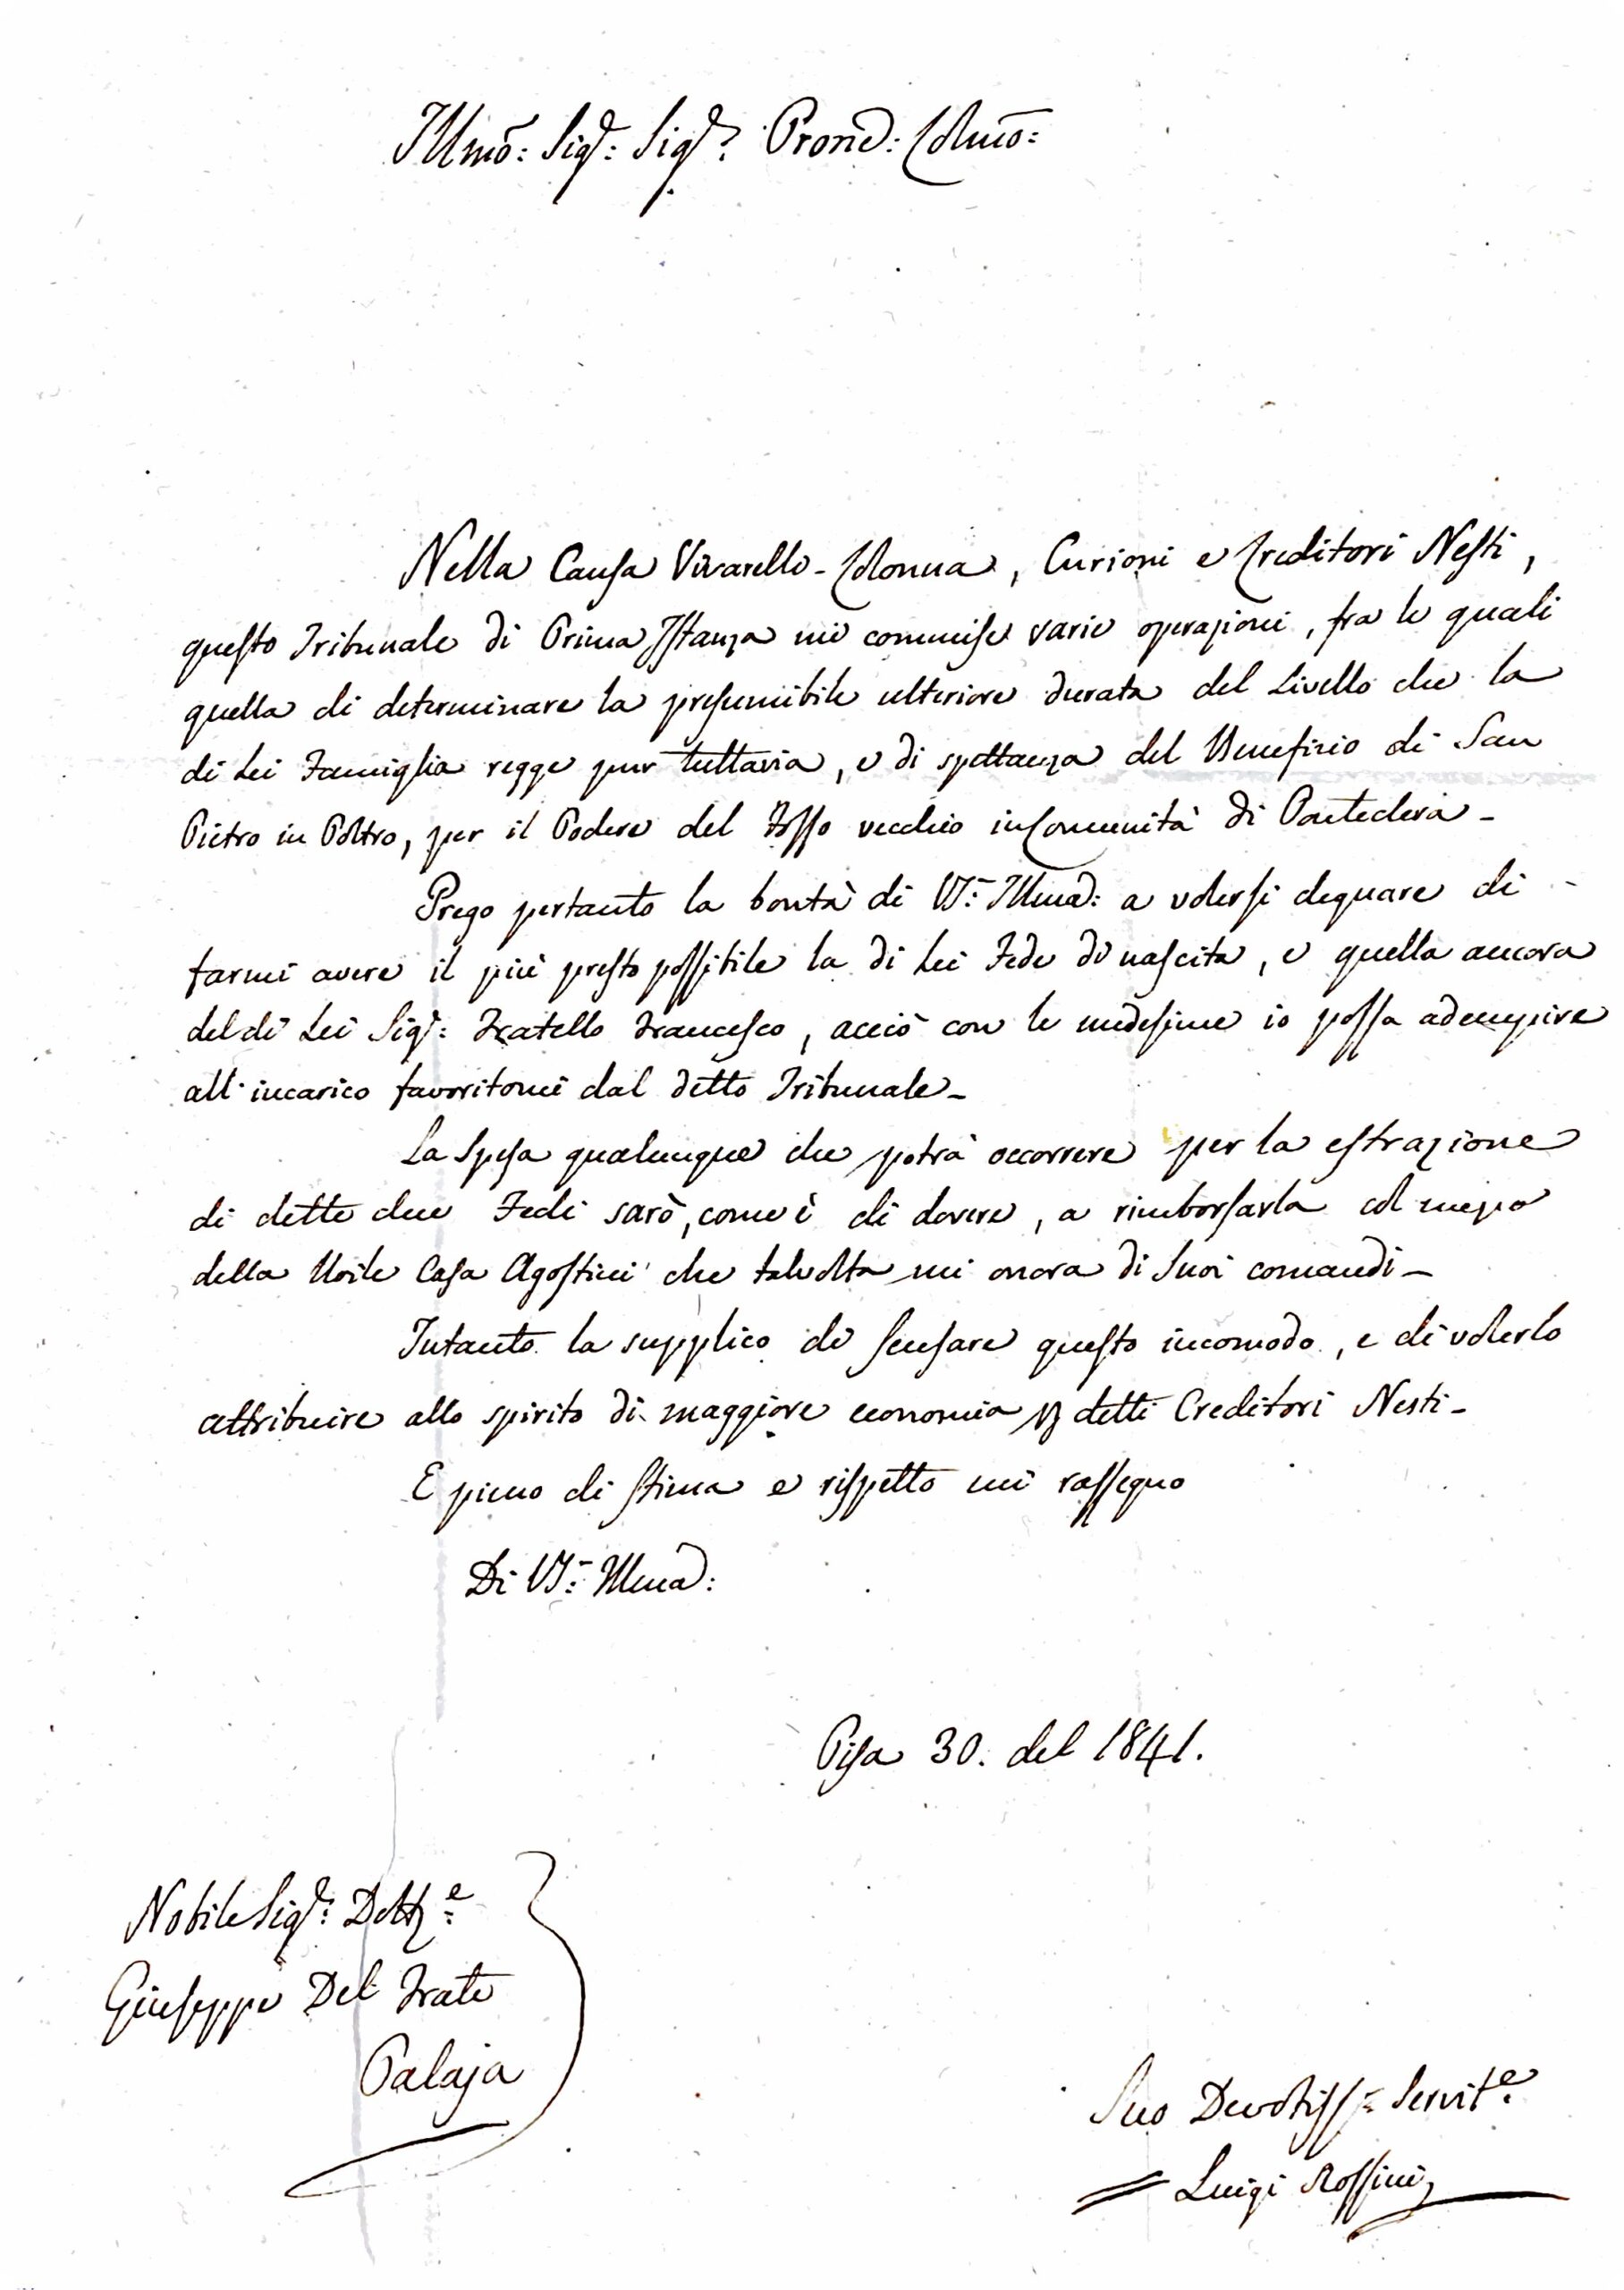 Illmo: Sigr: Sigr: Pron: Colmo:
Nella Causa Vivarello-Colonna, Curioni e Creditori Nesti,
questo Tribunale di Prima Istanza mi commise varie operazioni, fra le quali
quella di determinare la presumibile ulteriore durata del Livello che la
di Lei Famiglia regge pur tuttavia, e di spettanza del Benefizio di San
Pietro in Poltro, per il Podere del Fosso vecchio in Comunità di Pontedera -
Prego pertanto la bontà di VS: Illma: a volersi degnare di
farmi avere il più presto possibile la di Lei Fede di nascita, e quella ancora
del di Lei Sigr: Fratello Francesco, acciò con le medesime io possa adempire
all'incarico favoritomi dal detto Tribunale -
La Spesa qualunque che potrà occorrere per la estrazione
di dette due Fedi sarò, come è di dovere, a rimborsarla col mezzo
della Nobile Casa Agostini che talvolta mi onora di Suoi comandi -
Intanto la supplico di scusare questo incomodo, e di volerlo
attribuire allo spirito di maggiore economia detti Creditori Nesti -
E pieno di stima e rispetto mi rassegno
Di VS: Illma:
Pisa 30. del 1841.
Nobile Sigr: Dotte:
Giuseppe Del Frate
Palaja
Suo Devotiss: Servite:
Luigi Rossini